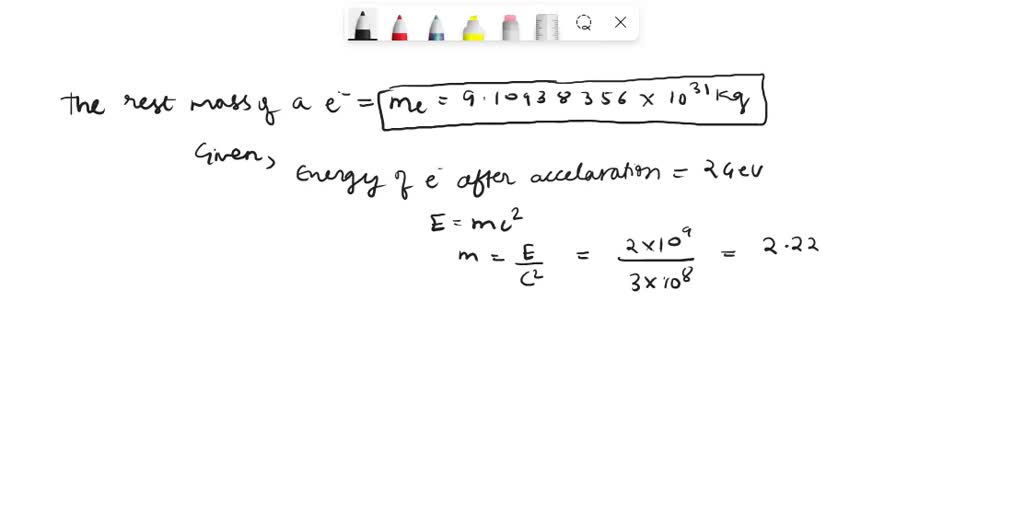 The rest mass of a e⁻ = me = 9.10938356 × 10³¹ kg
Given,
Energy of e⁻ after accelaration = 2GeV
E = mc²
m = E/C² = 2×10⁹/3×10⁸ = 2.22